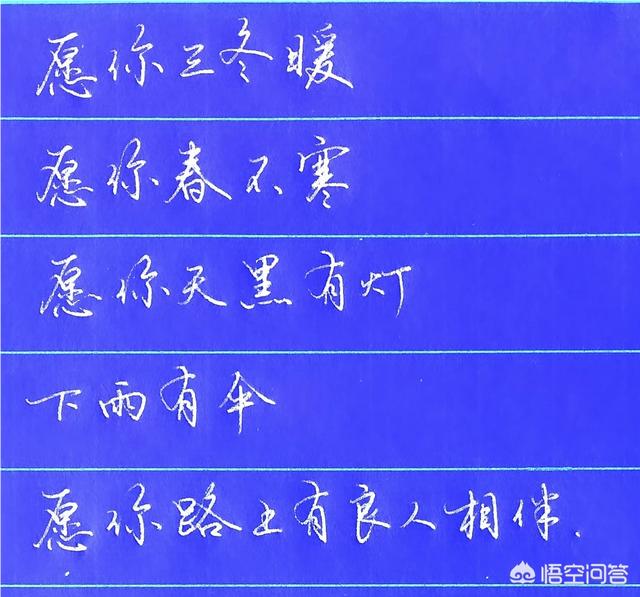 愿你三冬暖
愿你春不寒
愿你天黑有灯
下雨有伞
愿你路上有良人相伴.
悟空问答